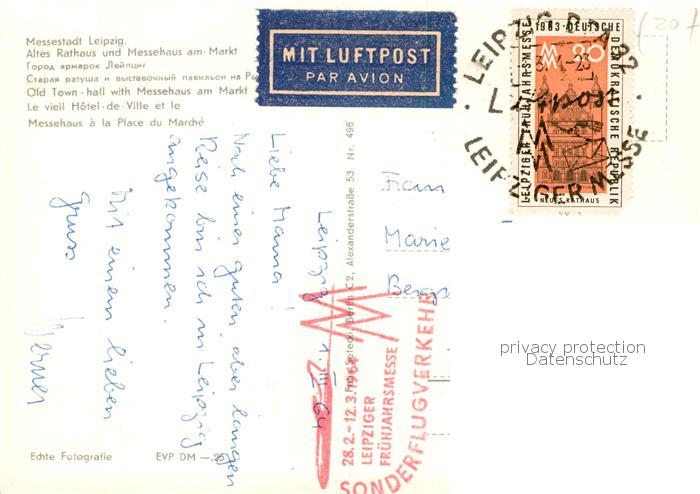 Messestadt Leipzig.
Altes Rathaus und Messehaus am Markt
Город ярмарок Лейпциг
Старая ратуша и выставочный павильон на
Old Town-hall with Messehaus am Markt
Le vieil Hôtel-de-Ville et le
Messehaus à la Place du Marché
MIT LUFTPOST
PAR AVION
LEIPZIG
LEIPZIGER MESSE
1963 · DEUTSCHE
DEMOKRATISCHE REPUBLIK
LEIPZIGER FRÜHJAHRSMESSE
20
NEUES RATHAUS
(20
Leipzig 1. III 64
Liebe Mama!
Nach einer guten aber langen
Reise bin ich in Leipzig
angekommen.
Mit einem lieben
Gruss
Werner
Frau
Marie
Berlin C2, Alexanderstraße 53 Nr. 498
28.2.–12.3.1964
LEIPZIGER
FRÜHJAHRSMESSE
SONDERFLUGVERKEHR
privacy protection
Datenschutz
Echte Fotografie
EVP DM —.25